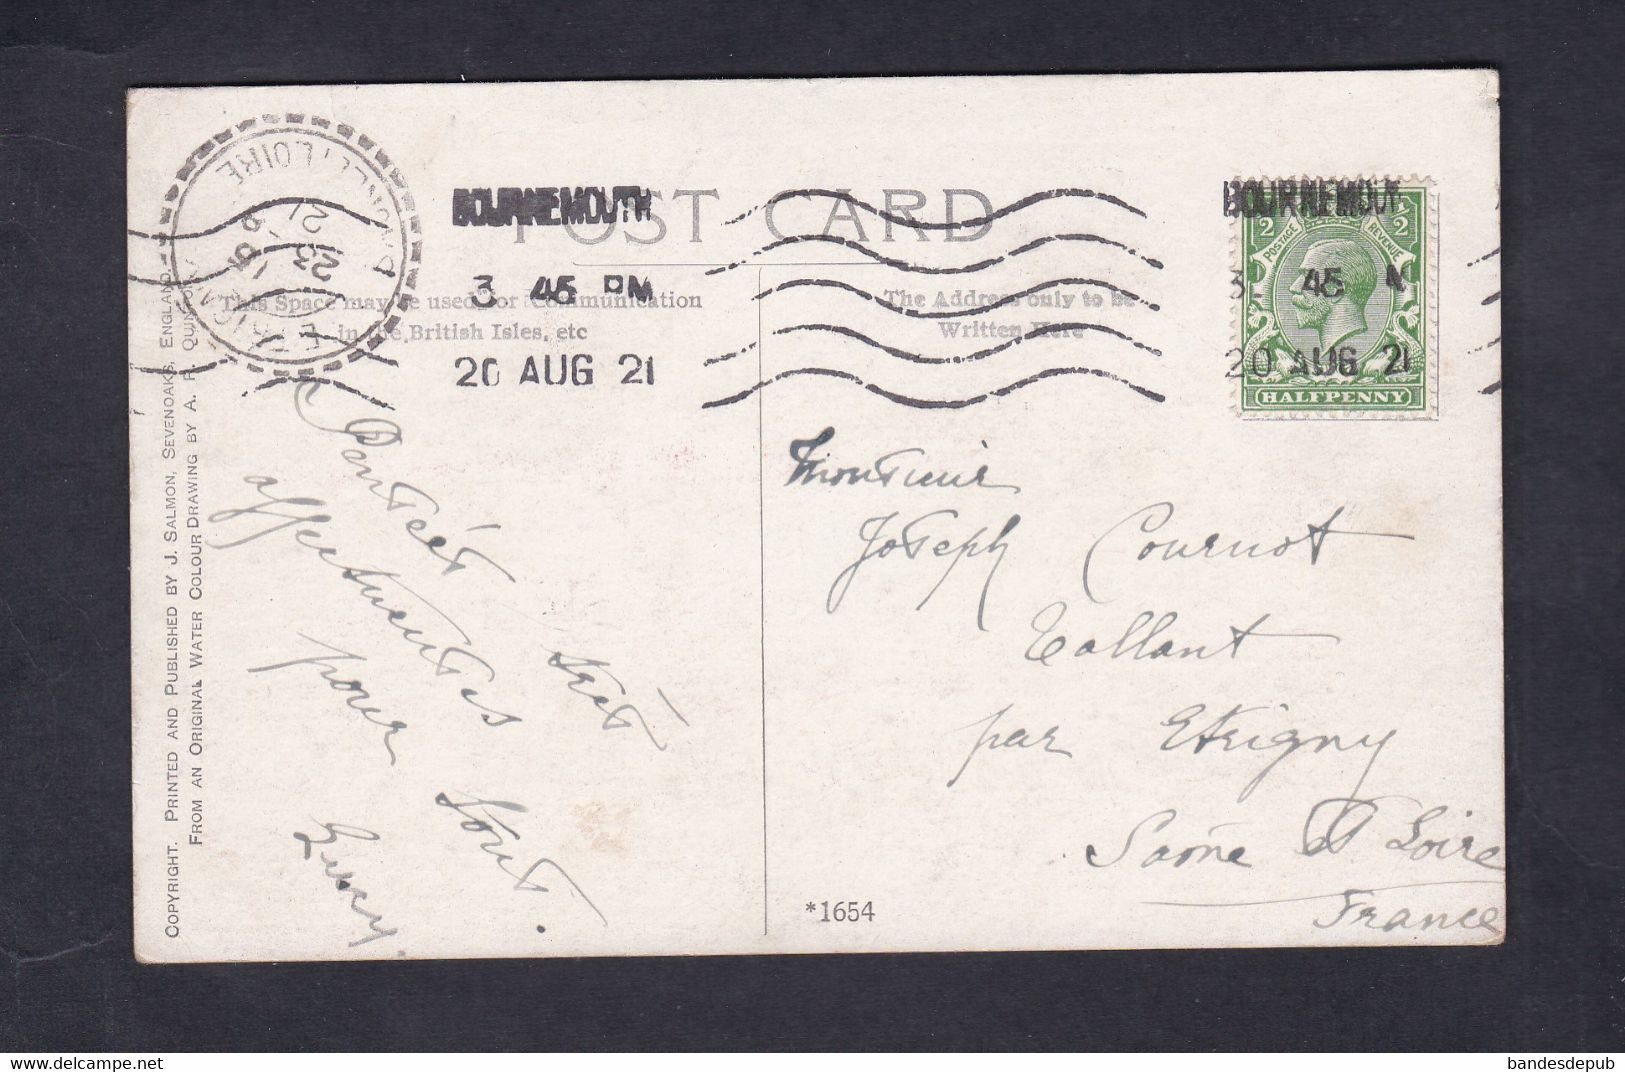 POST CARD
BOURNEMOUTH
3 45 PM
20 AUG 21
BOURNEMOU
3 45
20 AUG 21
1/2 POSTAGE REVENUE 1/2
HALFPENNY
ETRIGNY
SAONE-ET-LOIRE
15
23
8
21
This Space may be used for Communication
in the British Isles, etc
The Address only to be
Written Here
COPYRIGHT. PRINTED AND PUBLISHED BY J. SALMON, SEVENOAKS, ENGLAND.
FROM AN ORIGINAL WATER COLOUR DRAWING BY A. R. QUINTON.
très
affectueuses
pour tous.
Monsieur
Joseph Cournot
Tallant
par Etrigny
Saône et Loire
France
*1654
bandesdepub